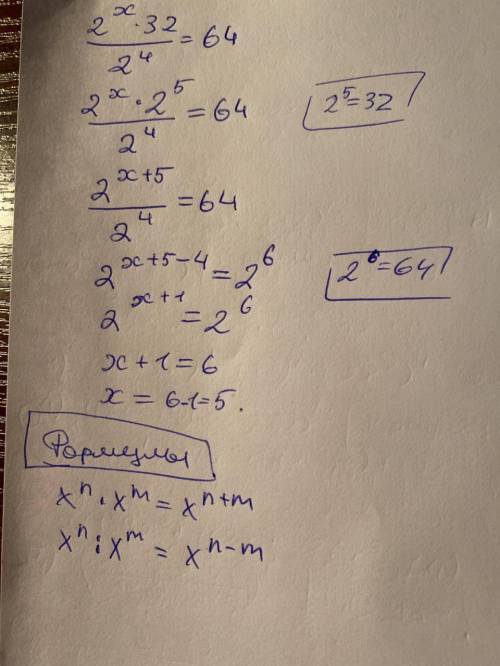 2^x · 32 / 2^4 = 64
2^x · 2^5 / 2^4 = 64
2^5 = 32
2^(x+5) / 2^4 = 64
2^(x+5-4) = 2^6
2^6 = 64
2^(x+1) = 2^6
x + 1 = 6
x = 6-1=5.
Формулы
x^n · x^m = x^(n+m)
x^n : x^m = x^(n-m)